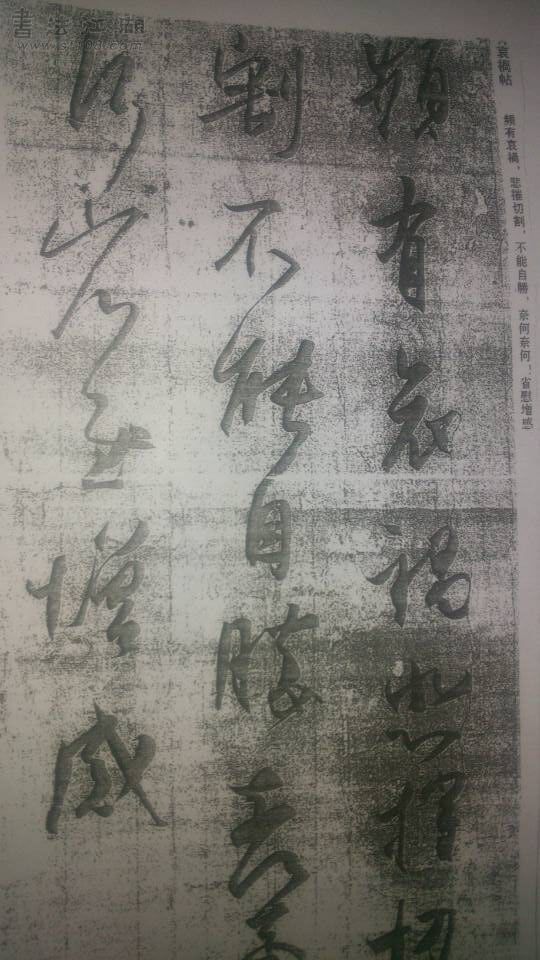 書法江湖
www.sf108.com
哀禍帖
頻有哀禍，悲摧切割，不能自勝，奈何奈何！省慰增感
頻有哀禍悲摧切
割不能自勝奈何奈
何省慰增感